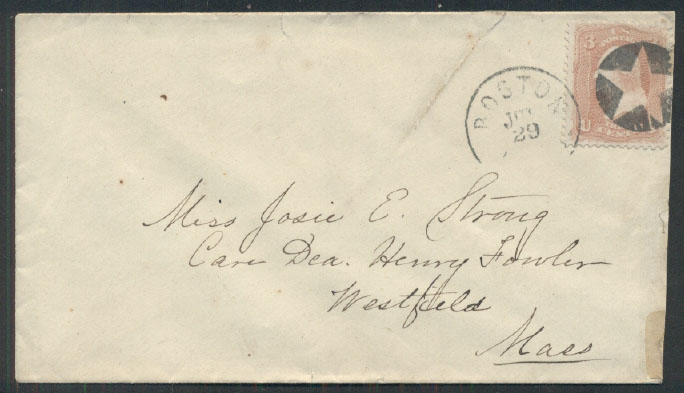 3
U
BOSTON
29
Miss Josie E. Strong
Care Dea. Henry Fowler
Westfield
Mass